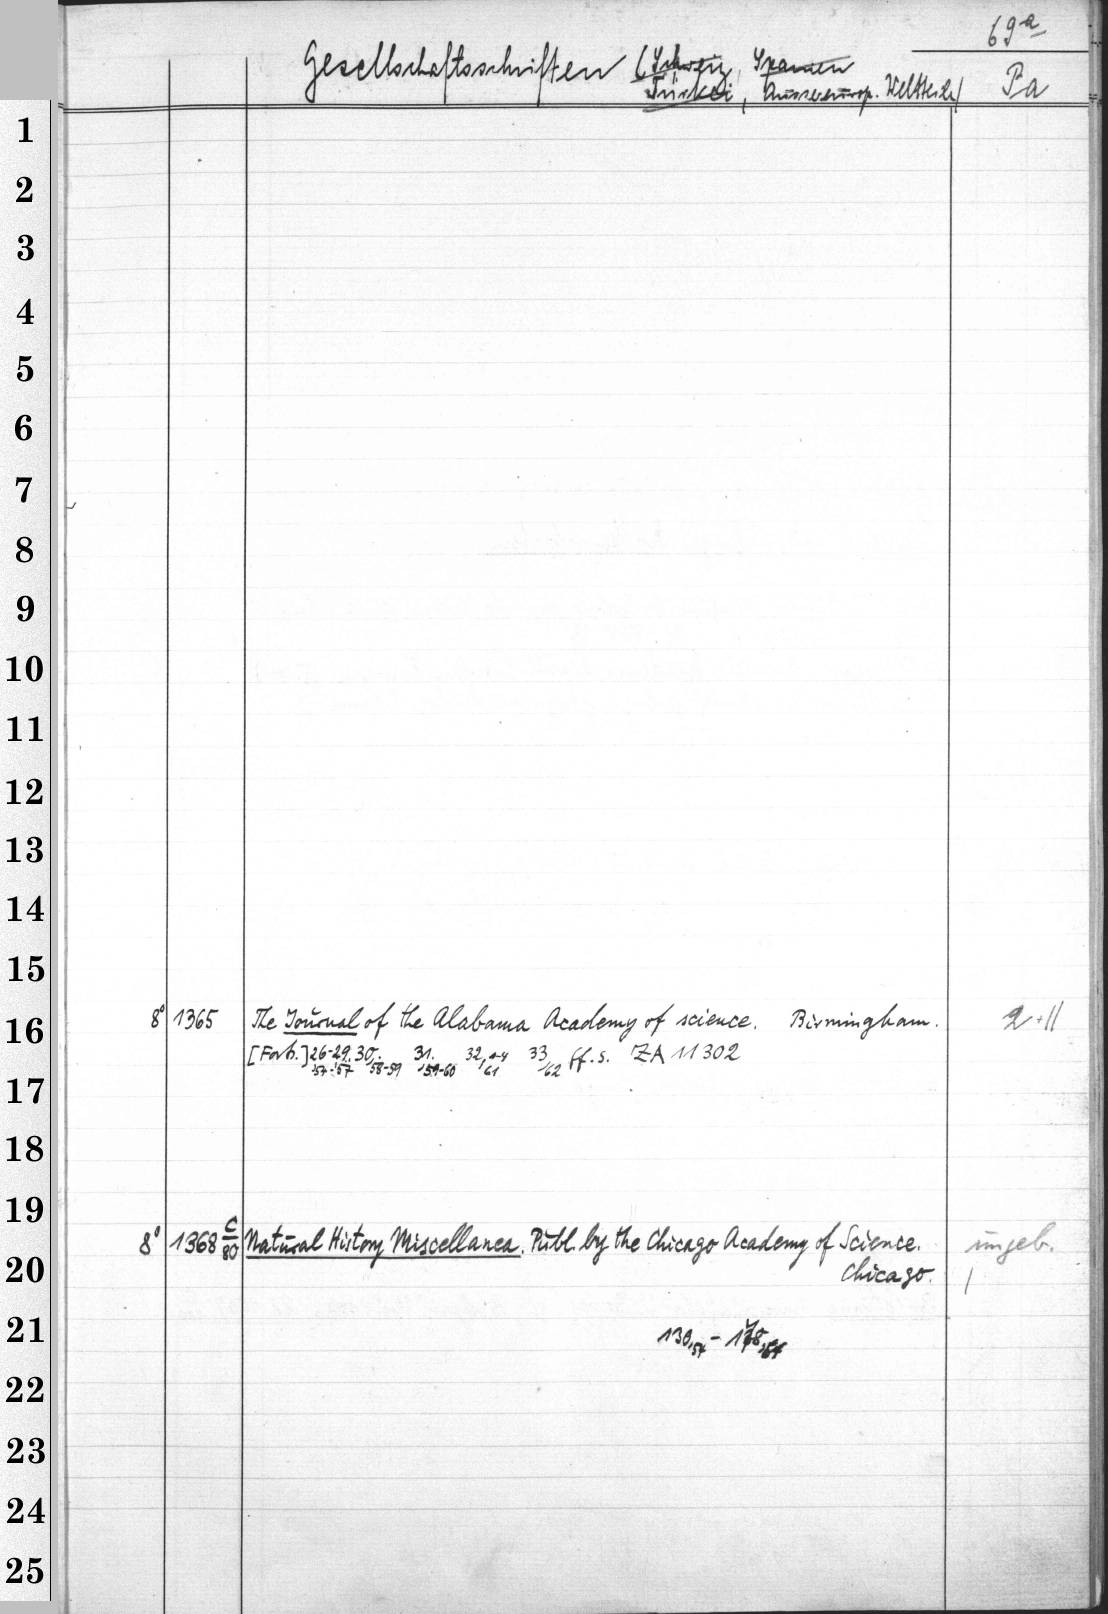 69a
Gesellschaftsschriften (Schweiz, Spanien
Türkei, Aussereurop. Weltteile) Pa
1
2
3
4
5
6
7
8
9
10
11
12
13
14
15
16 8° 1365 The Journal of the Alabama Academy of science. Birmingham. 2+11
[Forts.] 26-29. 30, 31. 32,1-4 33 ff. s. ZA 11302
54-57 58-59 59-60 61 62
17
18
19
8° 1368 C/80 Natural History Miscellanea. Publ. by the Chicago Academy of Science. ungeb.
20 Chicago. 1
21 130,54 - 178,
22
23
24
25